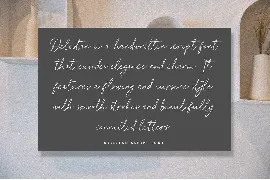 is a handwritten script font
that exudes elegance and charm. It
features a flowing and cursive style
with smooth strokes and beautifully
connected letters